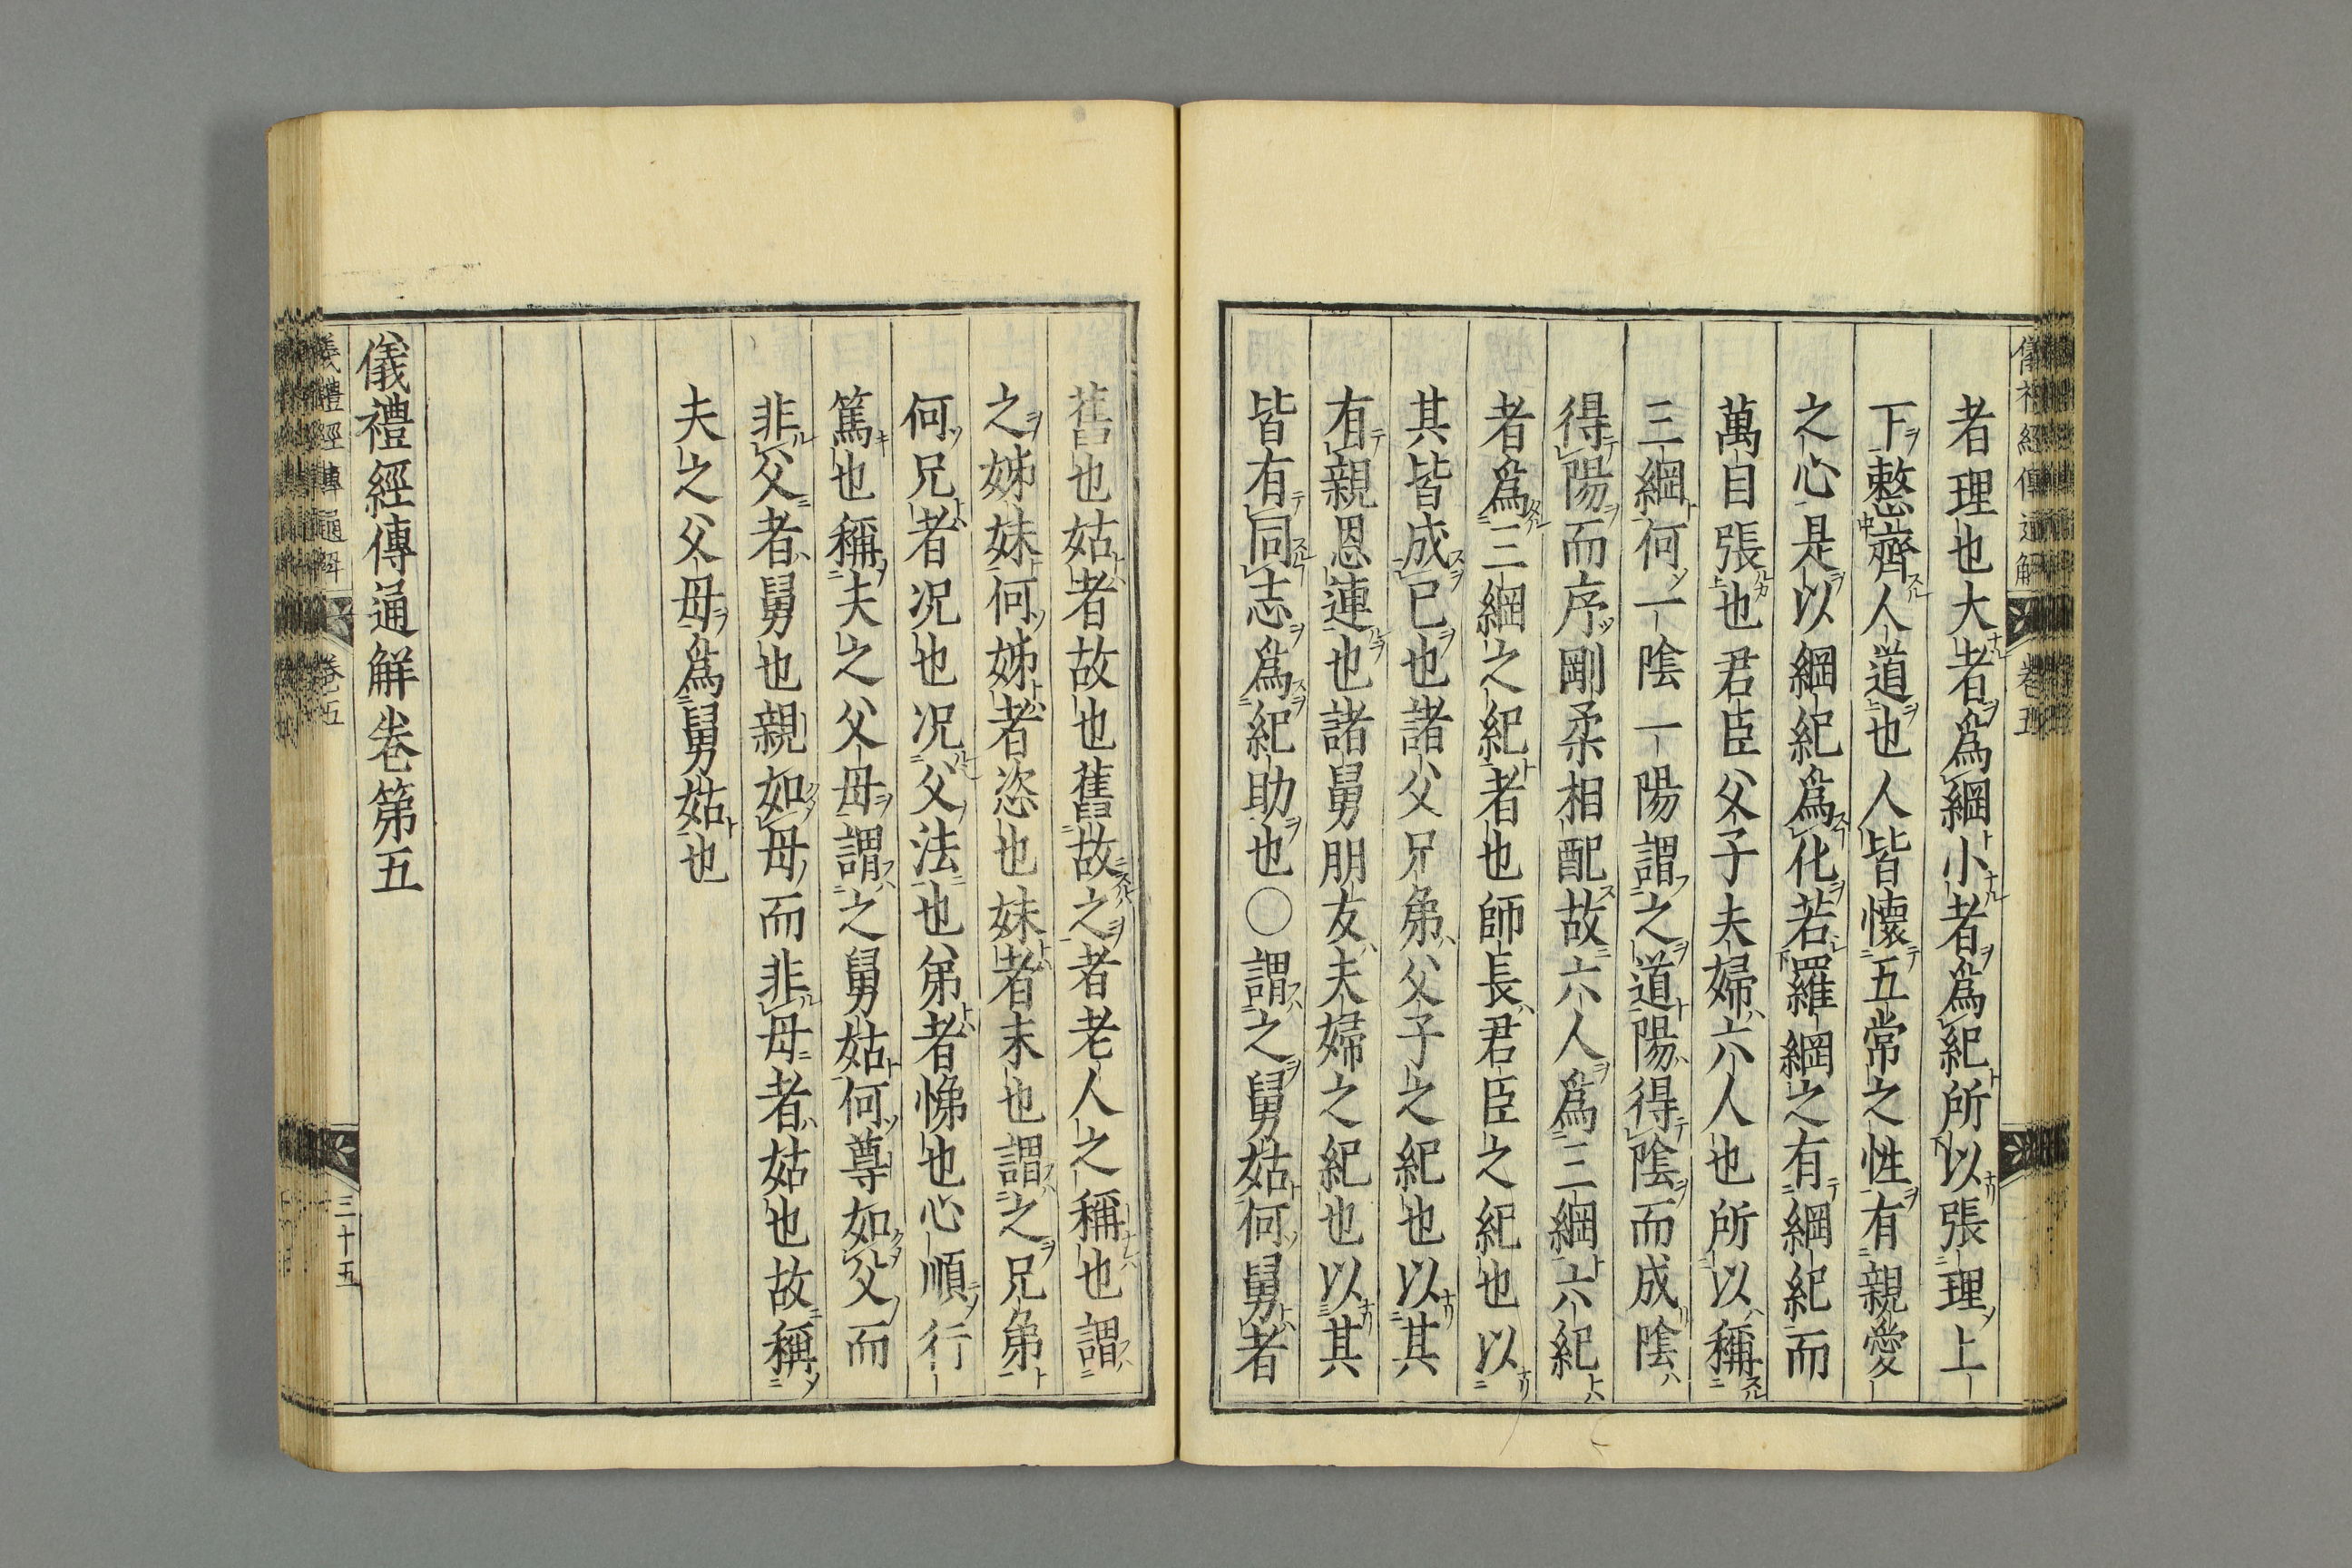 者理也大者爲綱小者爲紀所以張理上
下整齊人道也人皆懷五常之性有親愛
之心是以綱紀爲化若羅綱之有綱紀而
萬目張也君臣父子夫婦六人也所以稱
三綱何一陰一陽謂之道陽得陰而成陰
得陽而序剛柔相配故六人爲三綱六紀
者爲三綱之紀者也師長君臣之紀也以
其皆成已也諸父兄弟父子之紀也以其
有親恩連也諸舅朋友夫婦之紀也以其
皆有同志爲紀助也○謂之舅姑何舅者
舊也姑者故也舊故之者老人之稱也謂
之姊妹何姊者恣也妹者末也謂之兄弟
何兄者况也况父法也弟者悌也心順行
篤也稱夫之父母謂之舅姑何尊如父而
非父者舅也親如母而非母者姑也故稱
夫之父母爲舅姑也
儀禮經傳通解卷第五
儀禮經傳通解 卷五 三十五